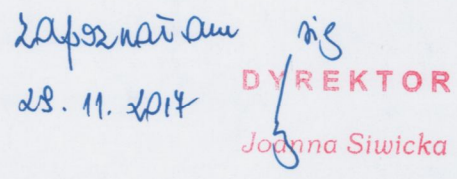 Zapoznałam się
29.11.2017
DYREKTOR
Joanna Siwicka